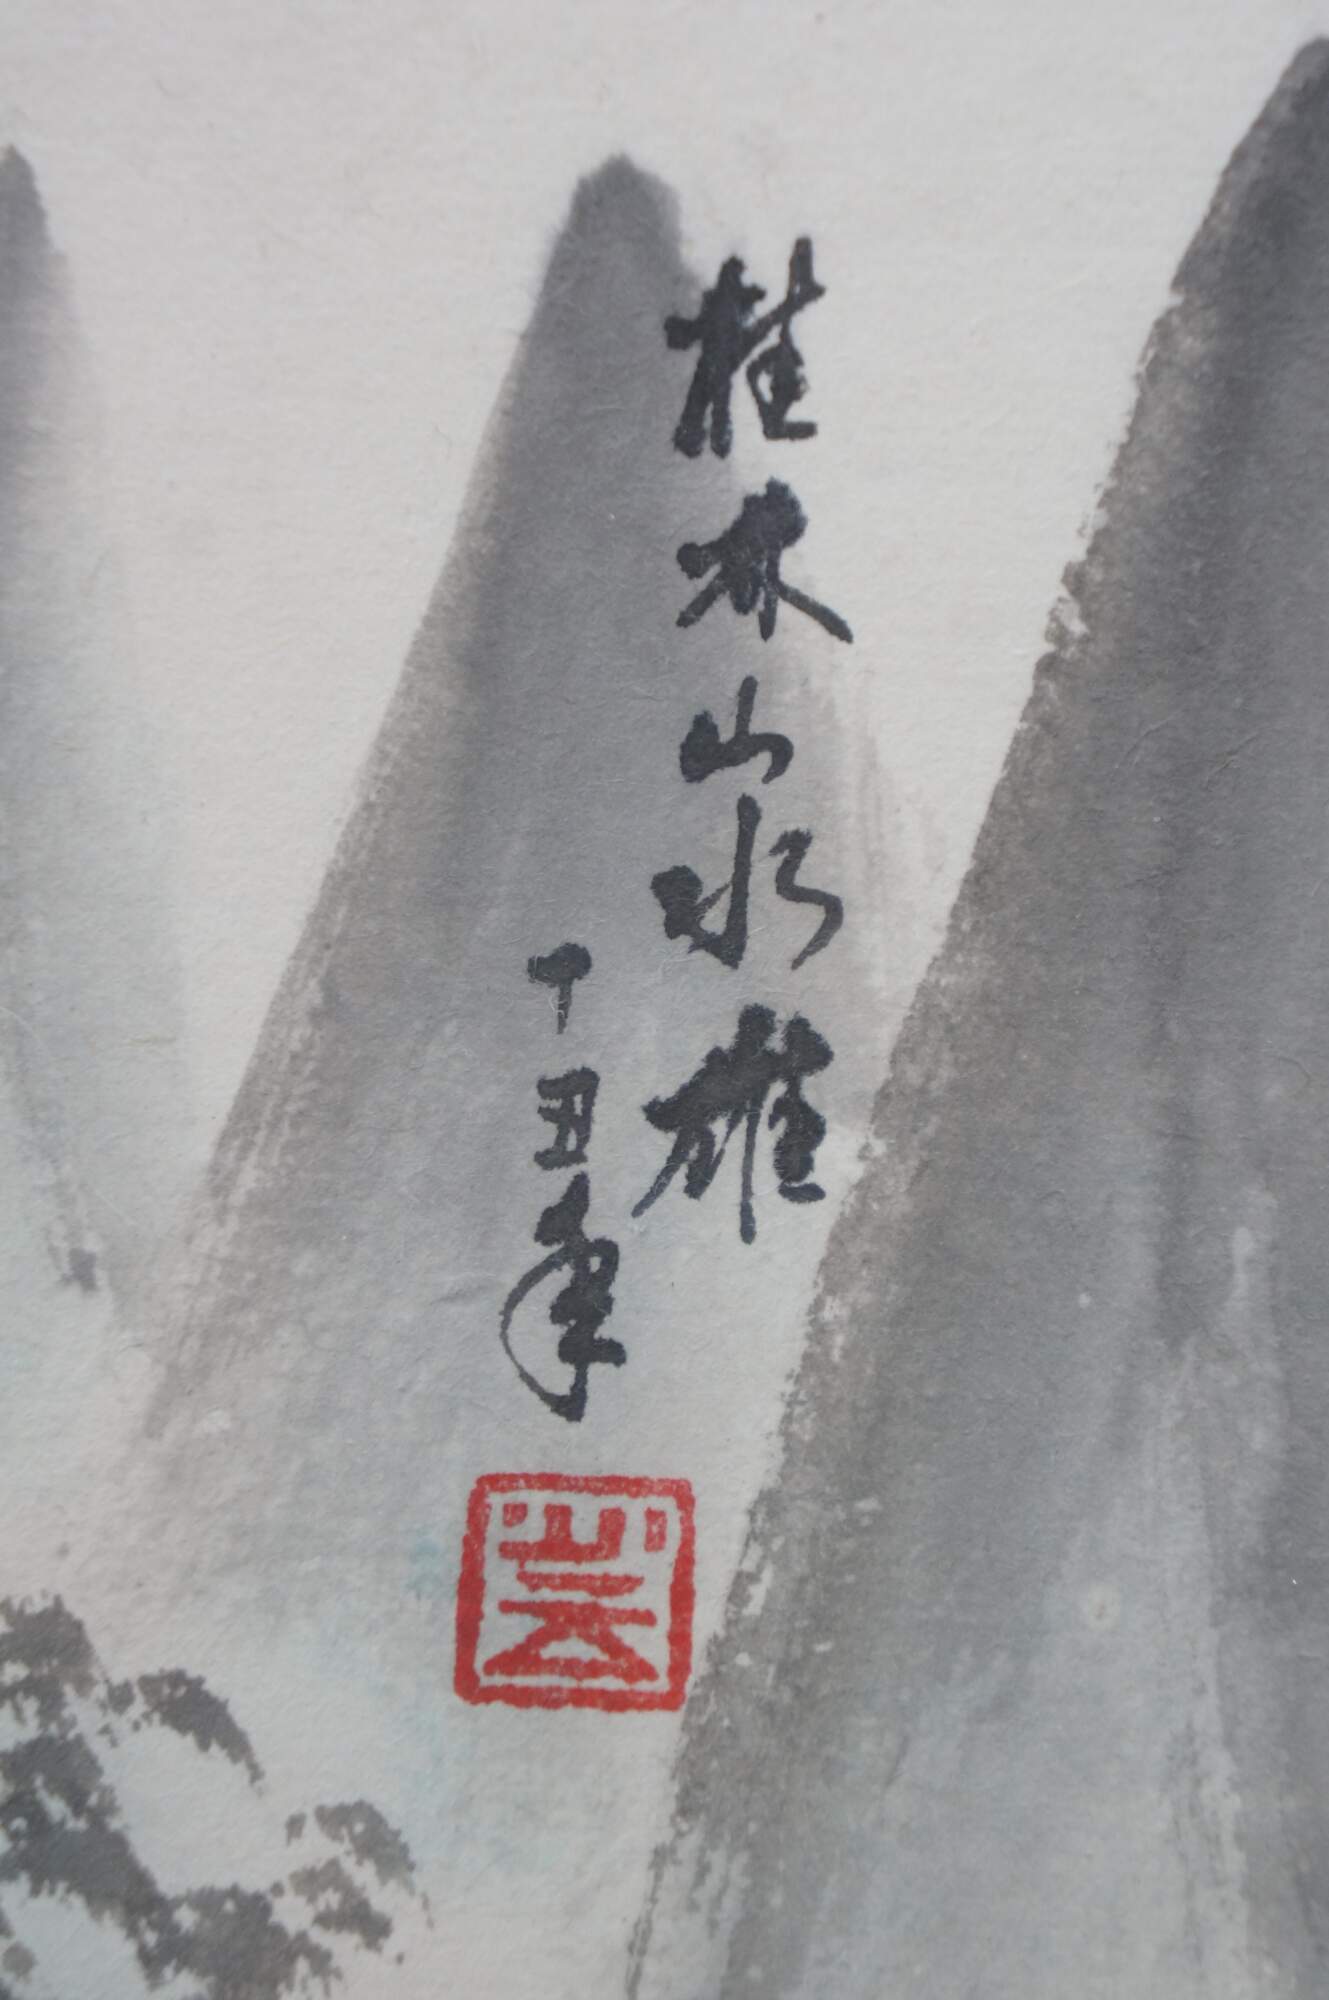 桂林山水雄
丁丑年